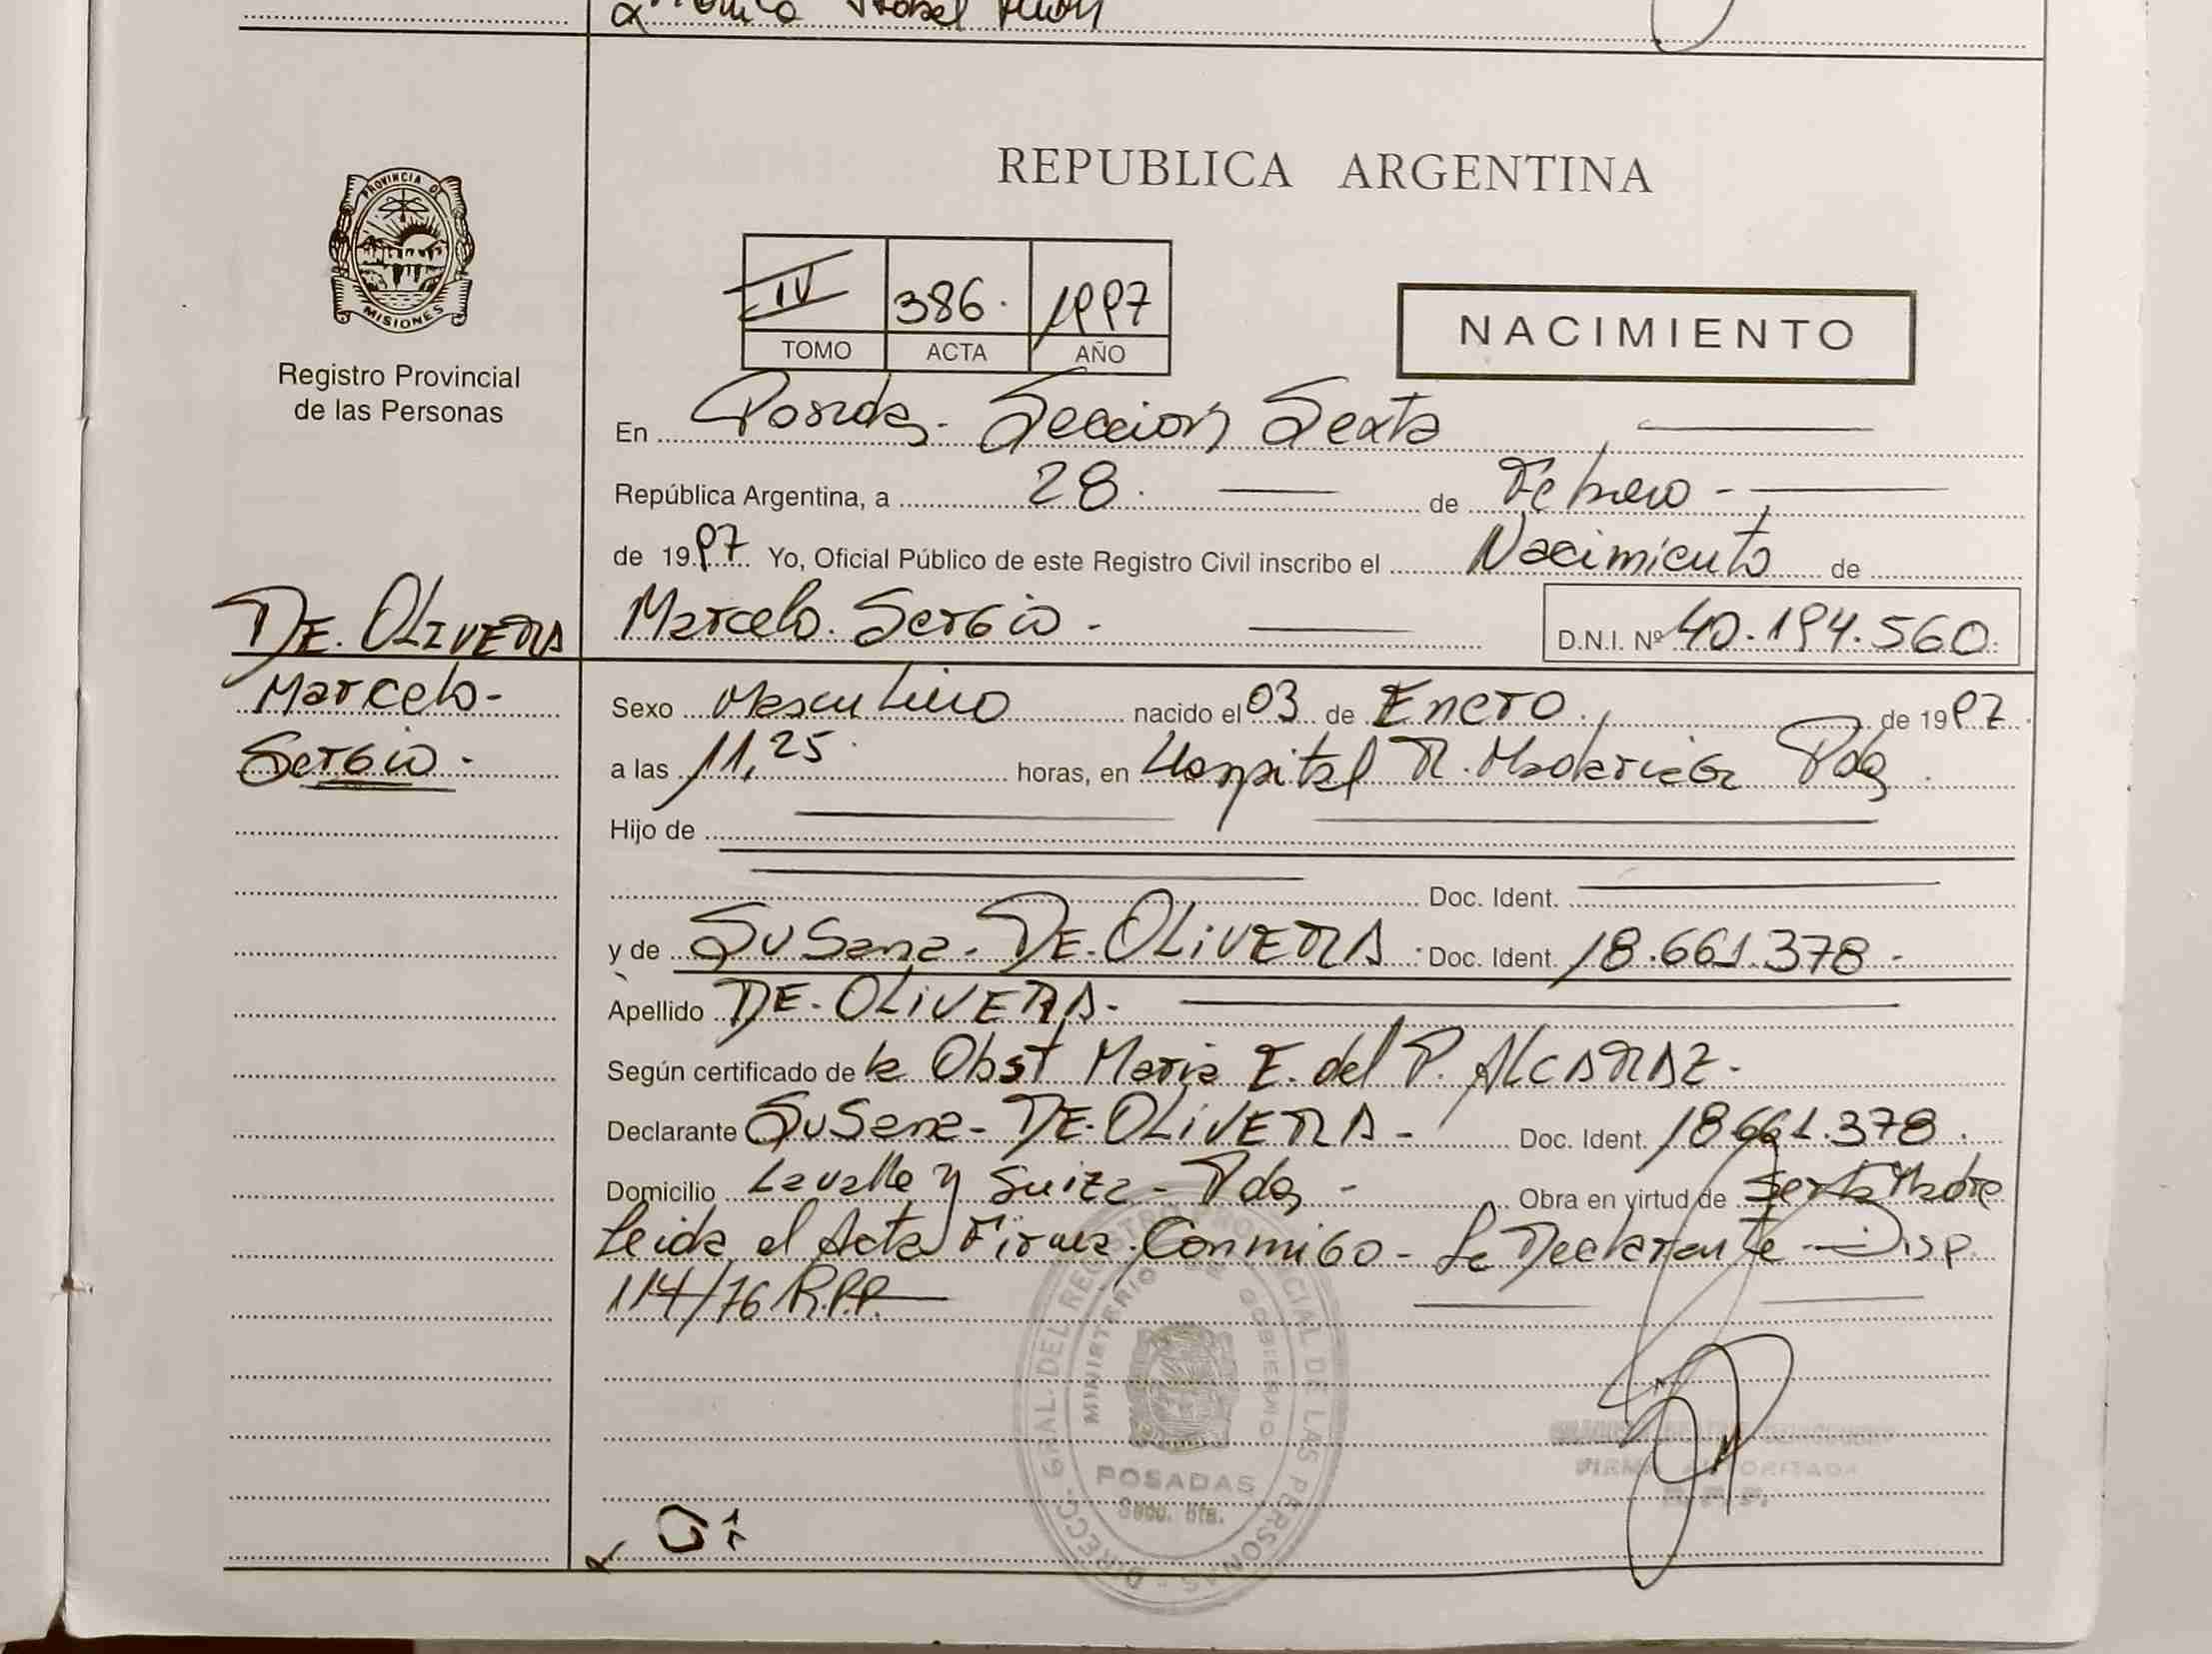 Isabel
PROVINCIA DE
MISIONES
Registro Provincial
de las Personas
REPUBLICA ARGENTINA
IV 386. 1997
TOMO ACTA AÑO
NACIMIENTO
En Posadas. Seccion Sexta
República Argentina, a 28. de Febrero -
de 1997 Yo, Oficial Público de este Registro Civil inscribo el Nacimiento de
DE. OLIVERA
Marcelo-
Sergio-
Marcelo. Sergio - D.N.I. Nº 40.194.560.
Sexo Masculino nacido el 03 de Enero. de 1997.
a las 11,25 horas, en Hospital R. Madariaga Pdas.
Hijo de
Doc. Ident.
y de Susana- DE-OLIVERA. Doc. Ident. 18.661.378-
Apellido DE-OLIVERA-
Según certificado de la Obst Maria E. del P. ALCARAZ-
Declarante Susana- DE-OLIVERA- Doc. Ident. 18661.378.
Domicilio Lavalle y Suiza- Pdas- Obra en virtud de Ser la Madre
Leida el Acta Firma Conmigo- La Declarante- Disp
114/76 R.P.P.
DIRECC. GRAL. DEL REGISTRO PROVINCIAL DE LAS PERSONAS -
MINISTERIO DE GOBIERNO
POSADAS
Secc. 6ta.
FIRMA AUTORIZADA
R.P.P.